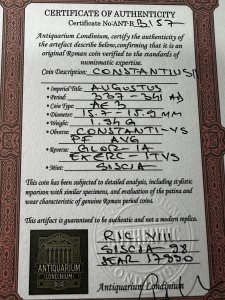 CERTIFICATE OF AUTHENTICITY
Certificate No:ANT-B 3157
Antiquarium Londinium, certify the authenticity of
the artefact describe below,confirming that it is an
original Roman coin verified to the standards of
numismatic expertise.
Coin Description: CONSTANTIUS II
• Imperial Title: AUGUSTUS
• Period: 337-341 AD
• Coin Type: AE 3
• Diameter: 15.7-15.9 MM
• Weight: 1.54 G
• Obverse: CONSTANTI-VS
PF AVG
• Reverse: GLOR-IA
EXERC-ITVS
• Mint: SISCIA
This coin has been subjected to detailed analysis, including stylistic
comparison with similar specimens, and evaluation of the patina and
wear characteristic of genuine Roman period coins.
This artifact is guaranteed to be authentic and not a modern replica.
RIC VIII
SISCIA 98
SEAR
ANTIQUARIUM
LONDINIUM
Antiquarium Londinium